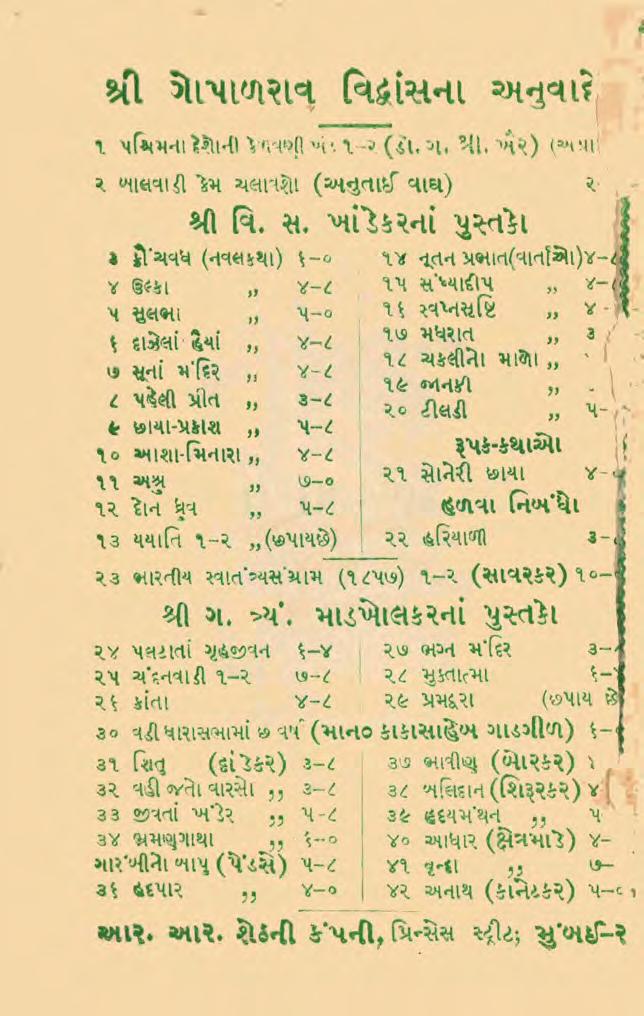 શ્રી ગોપાળરાવ વિદ્વાંસના અનુવાદો
૧ પશ્ચિમના દેશોની કેળવણી ખંડ ૧-૨ (ડો. ગ. શ્રી. ખૈર)
૨ બાલવાડી કેમ ચલાવશો (અનુતાઈ વાઘ) ૨
શ્રી વિ. સ. ખાંડેકરનાં પુસ્તકો
૩ ક્રૌંચવધ (નવલકથા) ૬-૦
૪ ઉલ્કા ,, ૪-૮
૫ સુલભા ,, ૫-૦
૬ દાઝેલાં હૈયાં ,, ૪-૮
૭ સૂનાં મંદિર ,, ૪-૮
૮ પહેલી પ્રીત ,, ૩-૮
૯ છાયા-પ્રકાશ ,, ૫-૮
૧૦ આશા-મિનારા ,, ૪-૮
૧૧ અશ્રુ ,, ૭-૦
૧૨ દોન ધ્રુવ ,, ૫-૮
૧૩ યયાતિ ૧-૨ ,, (છપાયછે)
૧૪ નૂતન પ્રભાત(વાર્તાઓ)૪-૮
૧૫ સંધ્યાદીપ ,, ૪-૮
૧૬ સ્વપ્નસૃષ્ટિ ,, ૪-
૧૭ મધરાત ,, ૩
૧૮ ચકલીનો માળો ,,
૧૯ જાનકી ,,
૨૦ ટીલડી ,, ૫-
રૂપક-કથાઓ
૨૧ સોનેરી છાયા ૪-
હળવા નિબંધો
૨૨ હરિયાળી ૩-
૨૩ ભારતીય સ્વાતંત્ર્યસંગ્રામ (૧૮૫૭) ૧-૨ (સાવરકર) ૧૦-
શ્રી ગ. ત્ર્યં. માડખોલકરનાં પુસ્તકો
૨૪ પલટાતાં ગૃહજીવન ૬-૪
૨૫ ચંદનવાડી ૧-૨ ૭-૮
૨૬ કાંતા ૪-૮
૨૭ ભગ્ન મંદિર ૩-
૨૮ મુક્તાત્મા ૬-
૨૯ પ્રમદ્વરા (છપાય છે
૩૦ વડી ધારાસભામાં છ વર્ષ (માન૦ કાકાસાહેબ ગાડગીળ) ૬-
૩૧ શિતુ (દાંડેકર) ૩-૮
૩૨ વહી જતો વારસો ,, ૩-૮
૩૩ જીવતાં ખંડેર ,, ૫-૮
૩૪ ભ્રમણગાથા ,, ૬-૦
ગારંબીનો બાપુ (પેંડસે) ૫-૮
૩૬ હદપાર ,, ૪-૦
૩૭ ભાવીણ (બોરકર)
૩૮ બલિદાન (શિરૂરકર) ૪
૩૯ હૃદયમંથન ,, ૫
૪૦ આધાર (ક્ષેત્રમાડે) ૪-
૪૧ વૃન્દા ,, ૭-
૪૨ અનાથ (કાનેટકર) ૫-
આર. આર. શેઠની કંપની, પ્રિન્સેસ સ્ટ્રીટ; મુંબઈ-૨